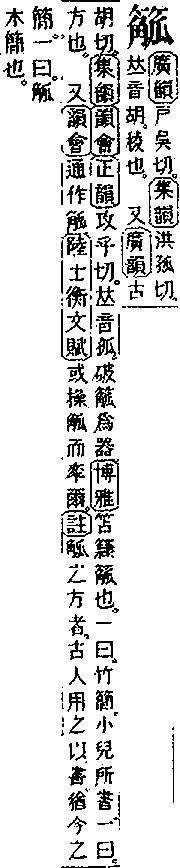 廣韻戸吳切。集韻洪孤切。
𠀤音胡。稜也。又廣韻古
胡切。集韻韻會正韻攻乎切。𠀤音孤。破觚爲器博雅笘也。一曰竹簡。小兒所書。一曰。
方也。又韻會通作觚。陸士衡文賦或操觚而率爾。註觚之方者。古人用之以書。猶今之
簡。一曰。觚
木簡也。